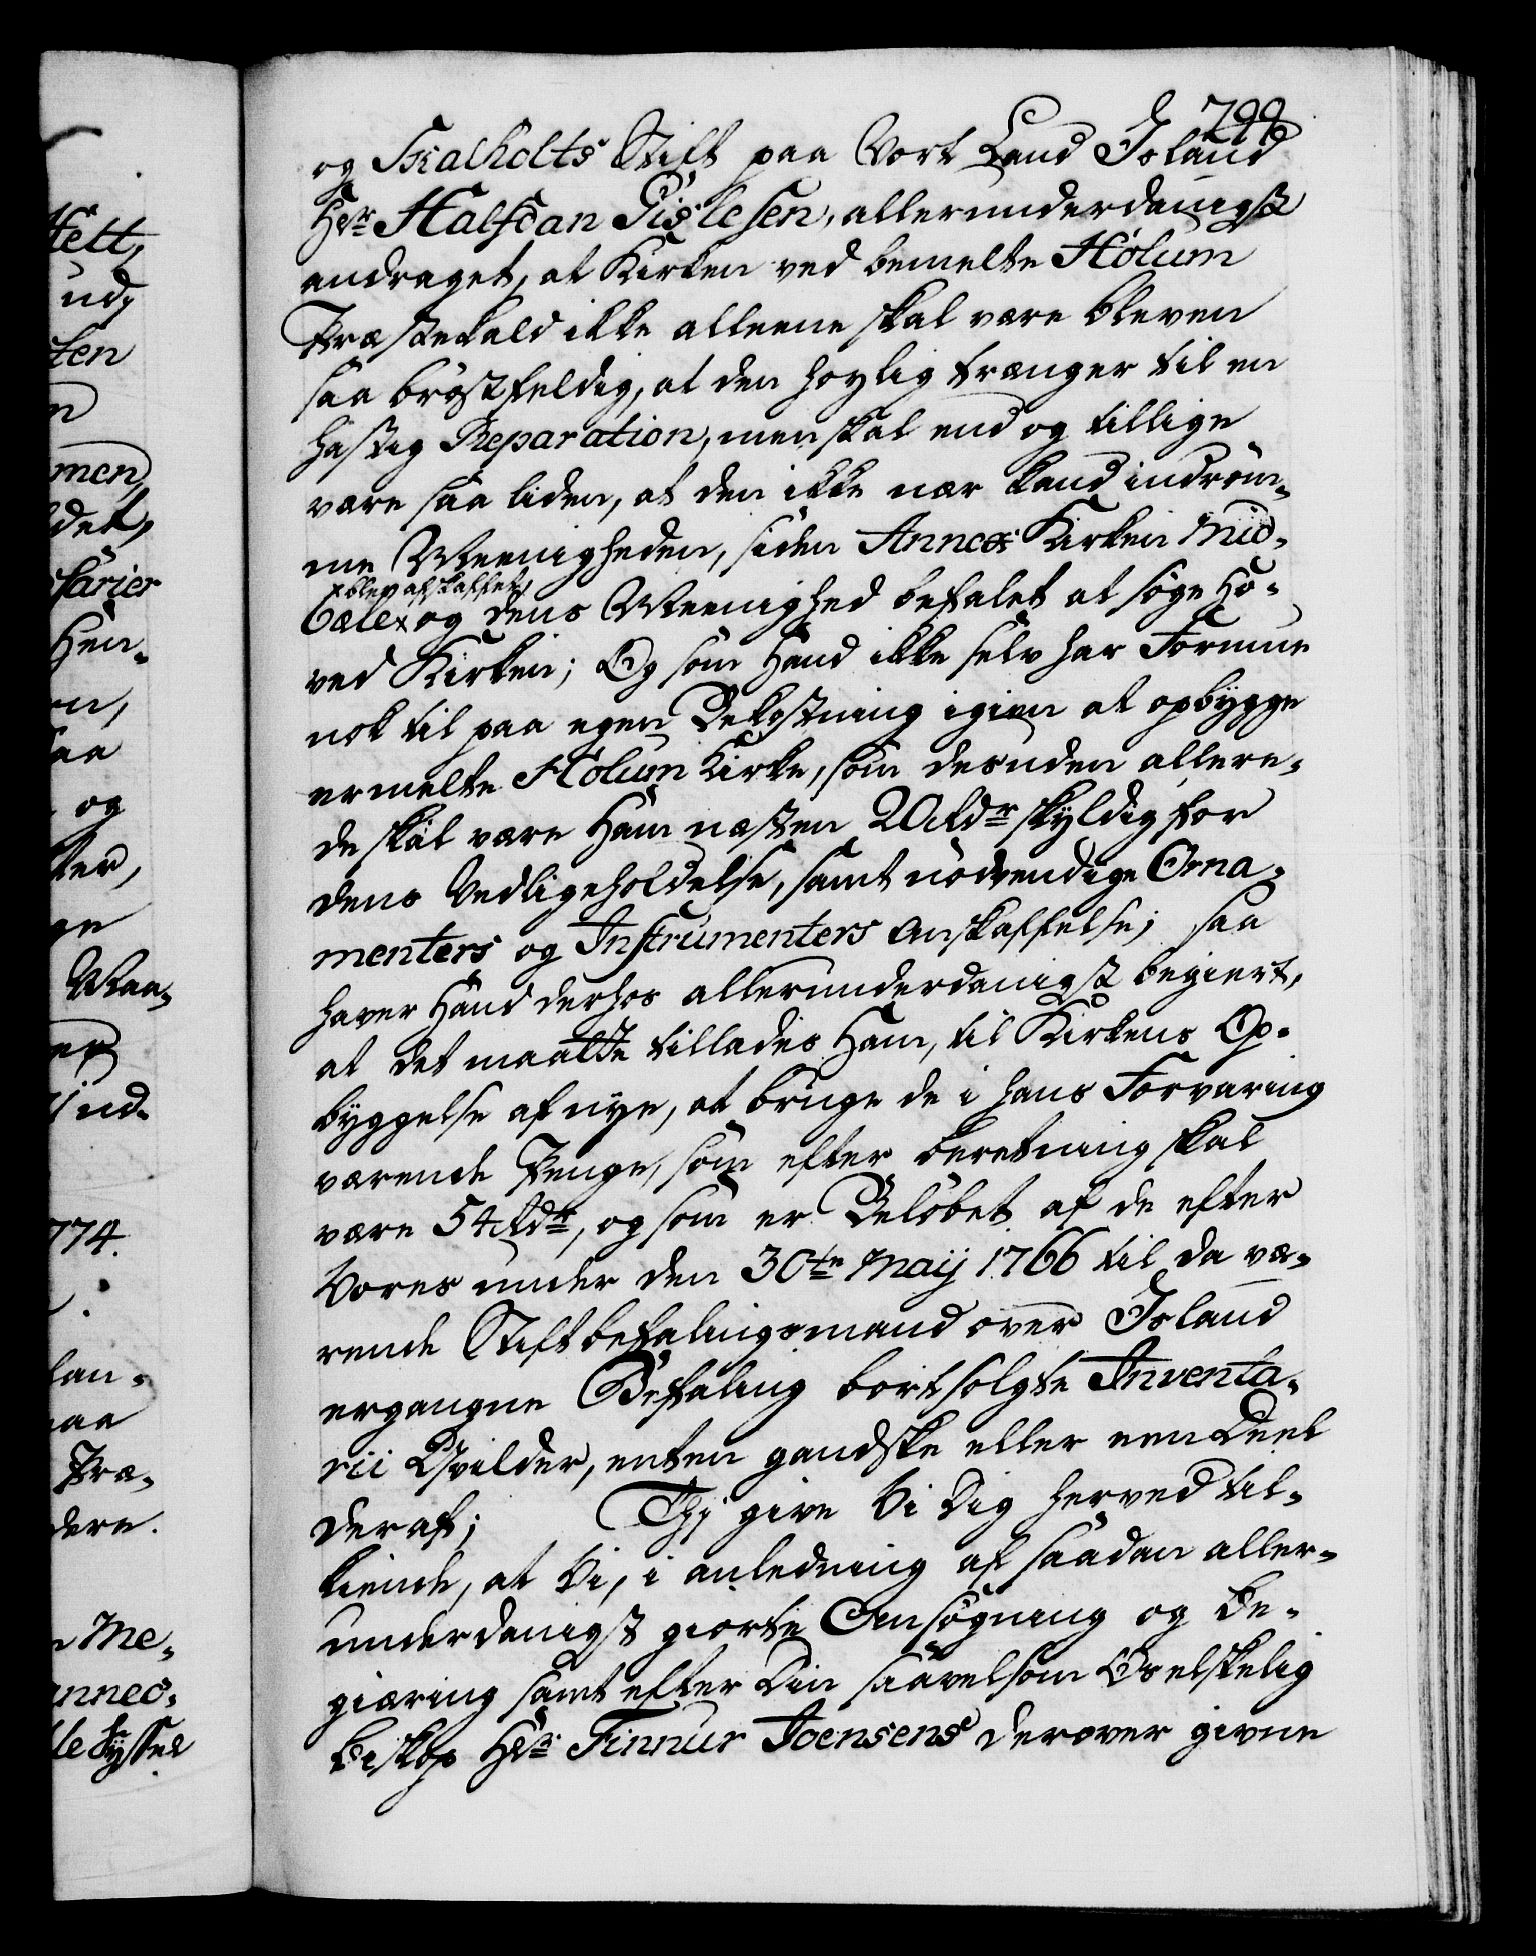 799
og Skalholts Stift paa Vort Land Island
Hr Halfdan Gislesen, allerunderdanigst
andraget, at Kirken ved bemelte Hólum
Præstekald ikke alleene skal være bleven
saa bröstfeldig, at den höylig trænger til en
hastig Reparation, men skal end og tillige
være saa liden, at den ikke nær kand indröm-
me Meenigheden, siden Annex Kirken Mid-
x blev afskaffet,
bælex og dens Meenighed befalet at söge Ho-
ved Kirken; Og som Hand ikke selv har Formue
nok til paa egen Bekostning igien at opbygge
ermelte Hólum Kirke, som desuden allere-
de skal være Ham næsten 20 Rdr skyldig for
dens Vedligeholdelse, samt nödvendige Orna-
menters og Instrumenters Anskaffelse; saa
haver Hand derhos allerunderdanigst begiert,
at det maatte tillades Ham, til Kirkens Op-
byggelse af nye, at bruge de i hans Forvaring
værende Penge, som efter beretning skal
være 54 Rdr, og som er Belöbet af de efter
Vores under den 30te Maij 1766 til da væ-
rende Stiftbefalingsmand over Island
ergangne Befaling bortsolgte Inventa-
rii Qvilder, enten gandske eller een Deel
deraf; Thj give Vi Dig herved til-
kiende, at Vi, i anledning af saadan aller-
underdanigst giorte Ansögning og Be-
giæring samt efter Din saavelsom Os elskelig
Biskop Hr Finnur Joensens derover givne